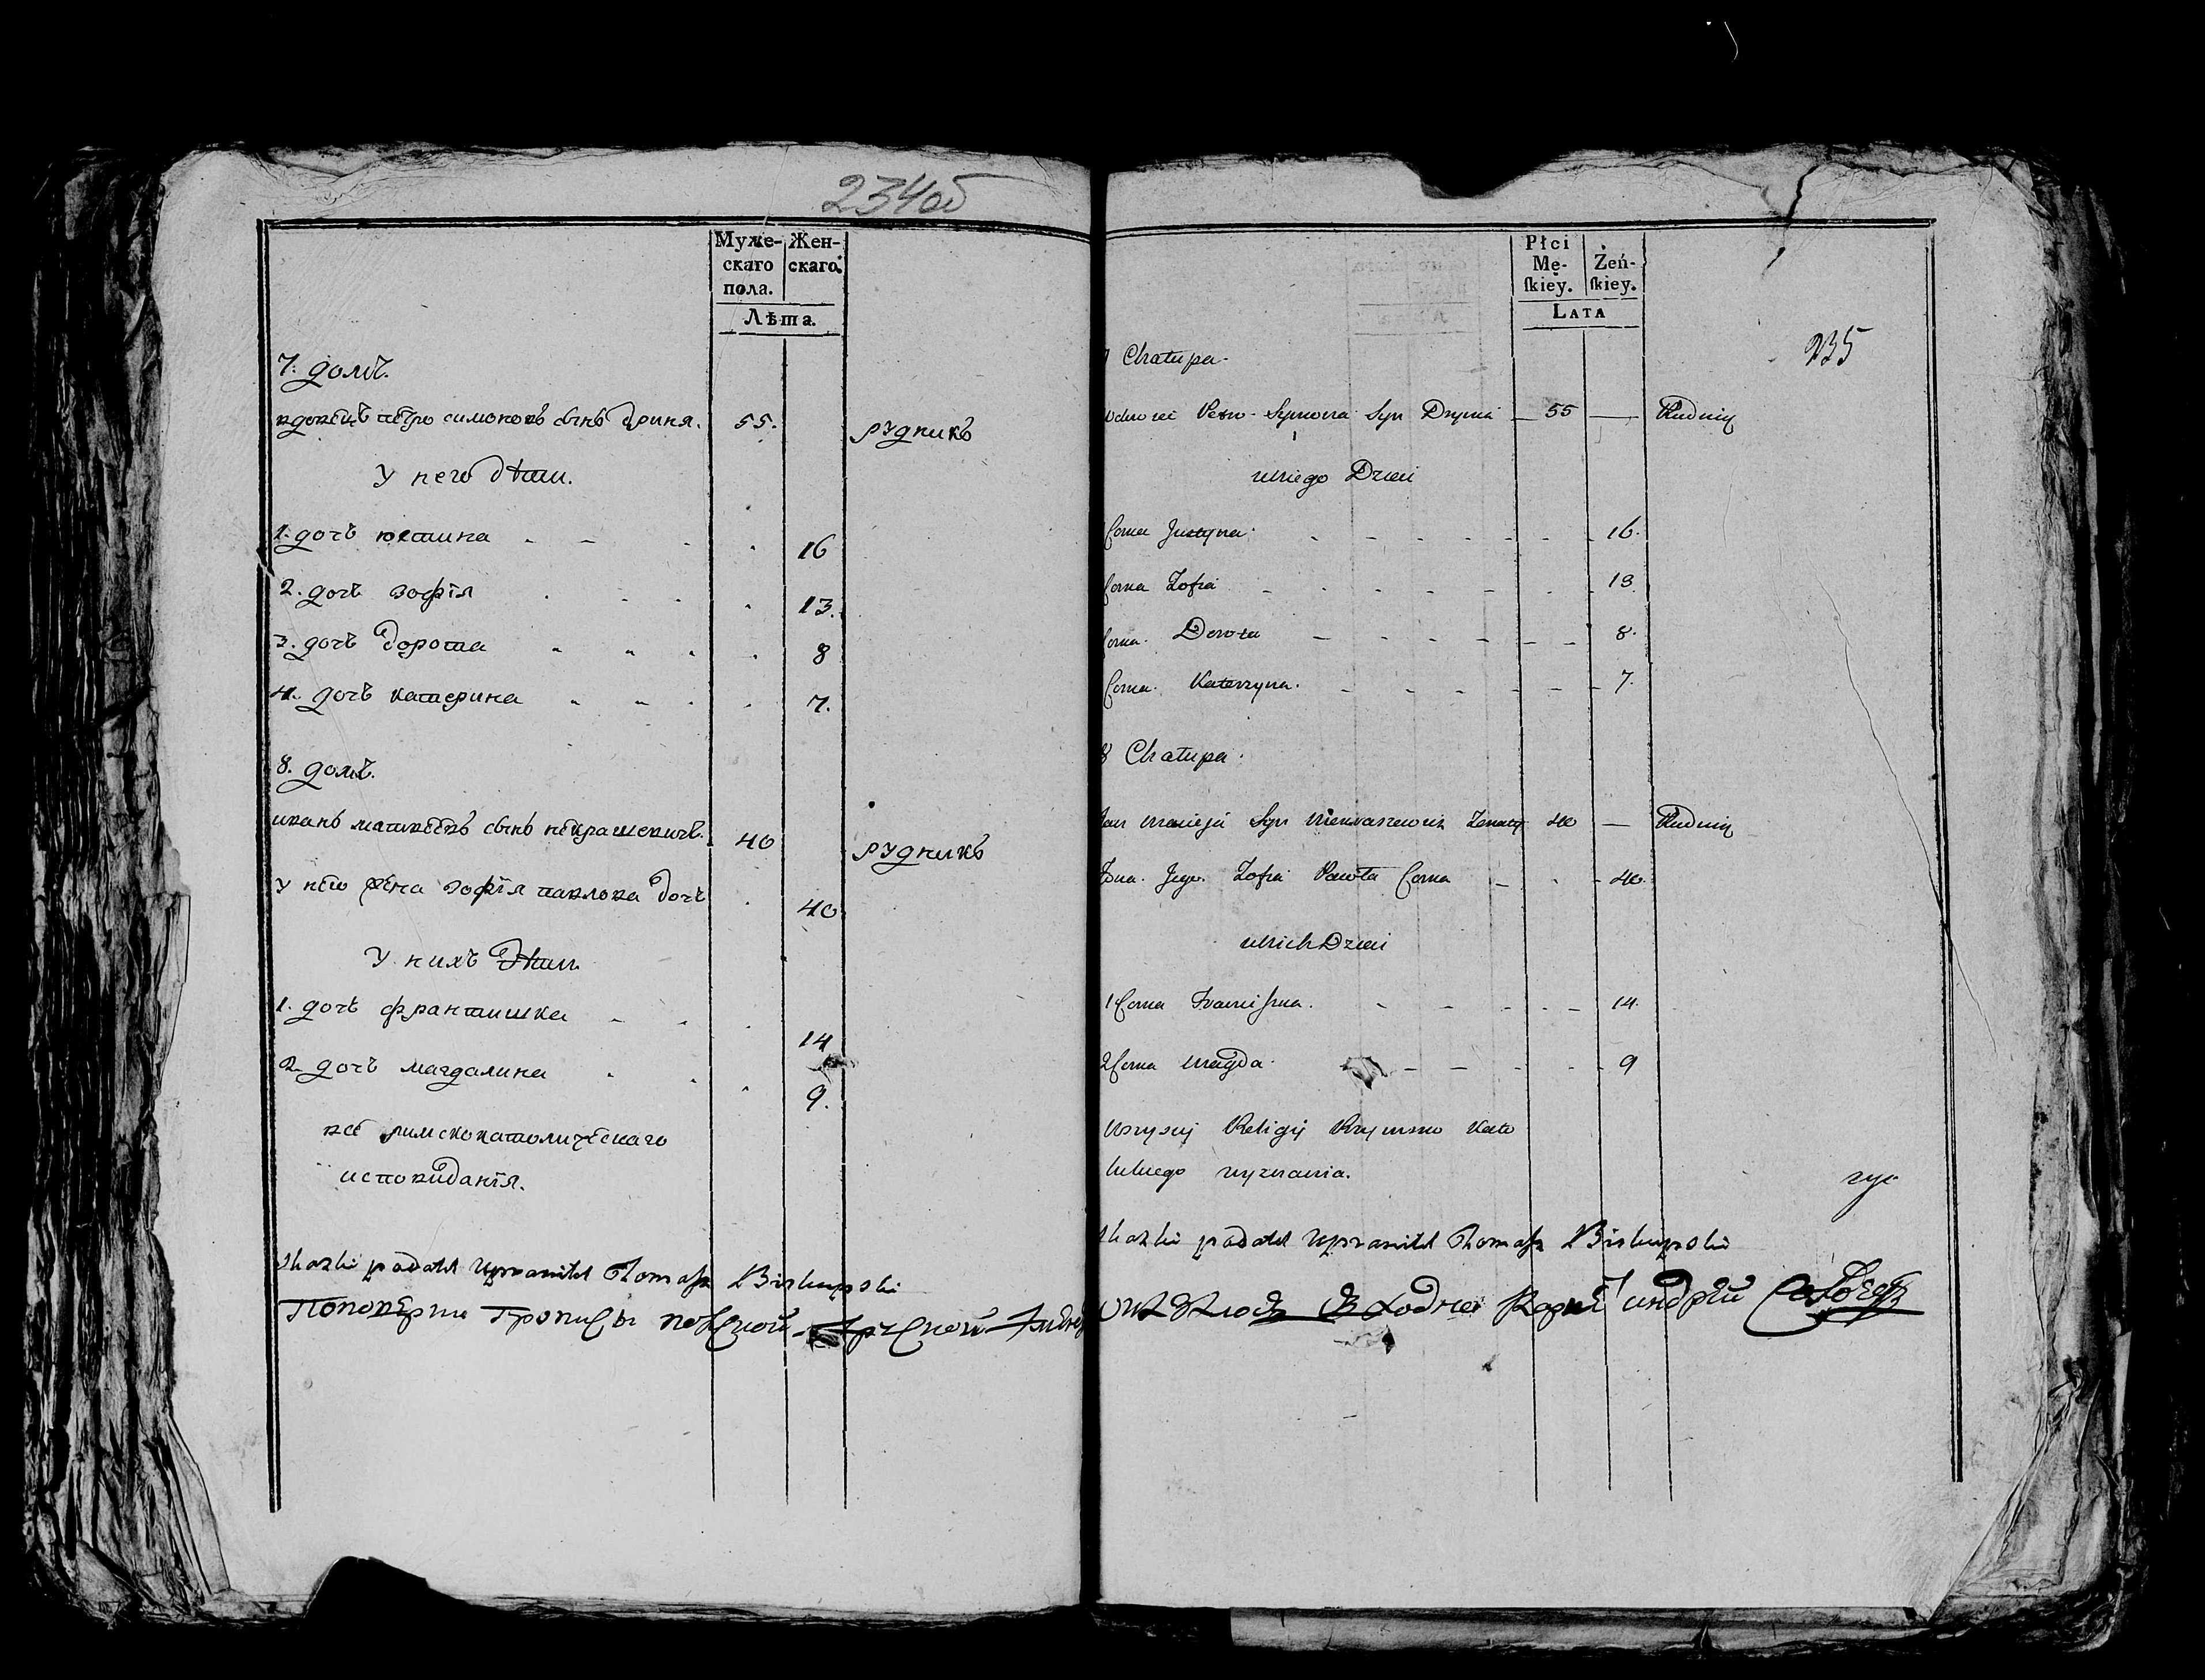 234об
Муже-
скаго
пола.
Жен-
скаго.
Лѣта.
7. домъ.
вдовецъ петро симоновъ сынъ дриня. 55. рудникъ
У него дѣти.
1. дочь юстина 16
2. дочь зофія 13.
3. дочь дорота 8
4. дочь катерина 7.
8. домъ.
иванъ матвеевъ сынъ некрашевичъ. 40 рудникъ
у него жена зофія павлова дочь 40
У нихъ дѣти
1. дочь франтишка 14
2. дочь магдалина 9.
все римскокатолическаго
исповиданія.
skazki podałd uprawitel Tomasz Biskupski
Płci
Mę-
skiey.
Żeń-
skiey.
LATA
235
Chałupa.
Petro Symona Syn Drynia 55 Rudnik
uniego Dzieci
Corka Justyna 16.
Corka Zofia 13
Corka Dorota 8.
Corka Katarzyna. 7.
8 Chałupa.
Jan Macieja Syn Niekraszewicz Zonaty 40 Rudnik
Zona Jego Zofia Pawła Corka 40.
unich Dzieci
1 Corka Franciszka. 14.
2 Corka Magda 9
Wszyscy Religii Rzymsko Kato
lickiego wyznania.
skazki podałd uprawitel Tomasz Biskupski